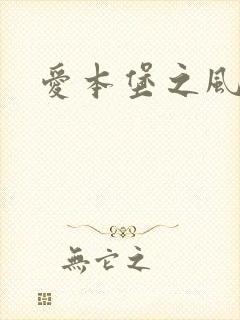 愛本堡之風
無它之